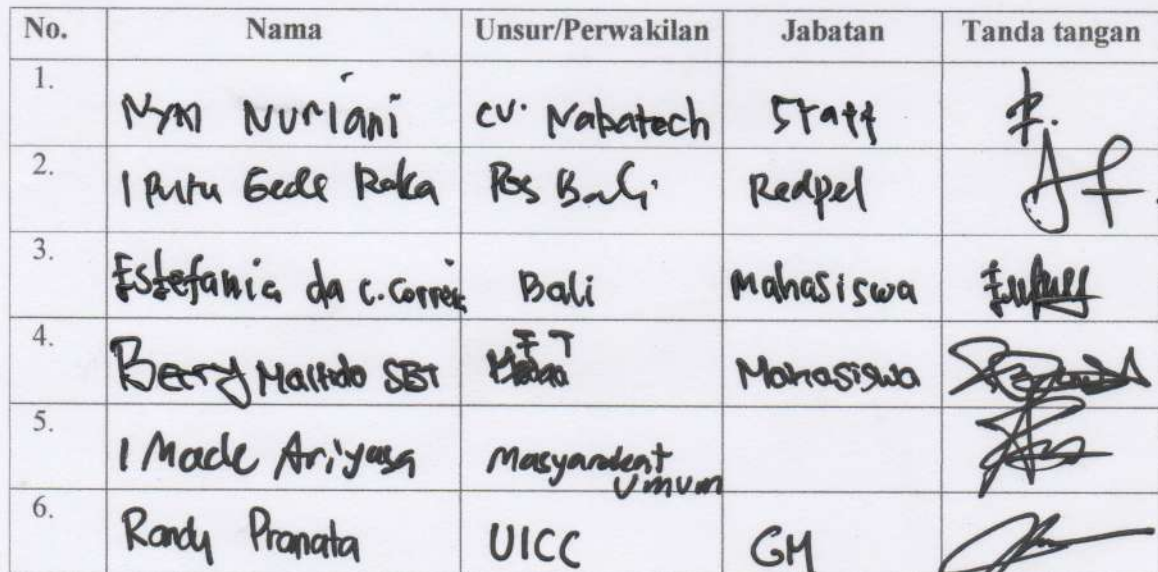 No. Nama Unsur/Perwakilan Jabatan Tanda tangan
1. Nym Nuriani CV. Nabatech Staff
2. I Putu Gede Raka Pos Bali Redpel
3. Estefania da C. Correia Bali Mahasiswa
4. Berry SBT FT Mahasiswa
5. I Made Ariyasa Masyarakat Umum
6. Randy Pranata UICC GM